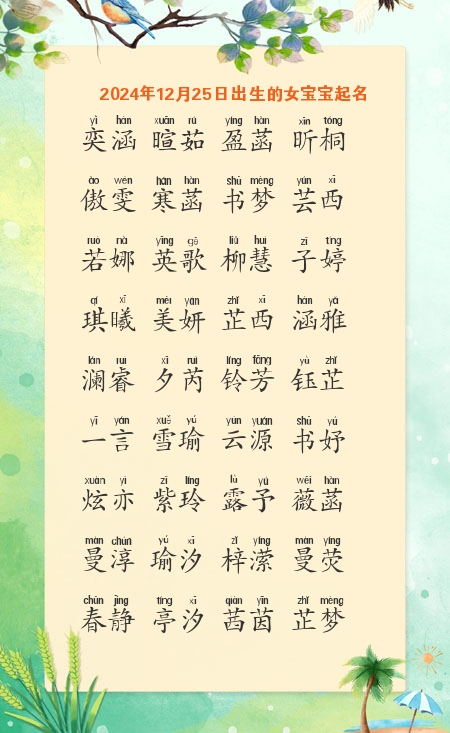 2024年12月25日出生的女宝宝起名
yì hán xuān rú yíng hàn xīn tóng
奕涵 暄茹 盈菡 昕桐
ào wén hán hàn shū mèng yún xī
傲雯 寒菡 书梦 芸西
ruò nà yīng gē liǔ huì zǐ tíng
若娜 英歌 柳慧 子婷
qí xī měi yán zhǐ xī hán yǎ
琪曦 美妍 芷西 涵雅
lán ruì xī ruì líng fāng yù zhǐ
澜睿 夕芮 铃芳 钰芷
yī yán xuě yú yún yuán shū yú
一言 雪瑜 云源 书妤
xuàn yì zǐ líng lù yǔ wēi hàn
炫亦 紫玲 露予 薇菡
màn chún yú xī zǐ yíng màn yíng
曼淳 瑜汐 梓潆 曼荧
chūn jìng tíng xī qiàn yīn zhǐ mèng
春静 亭汐 茜茵 芷梦